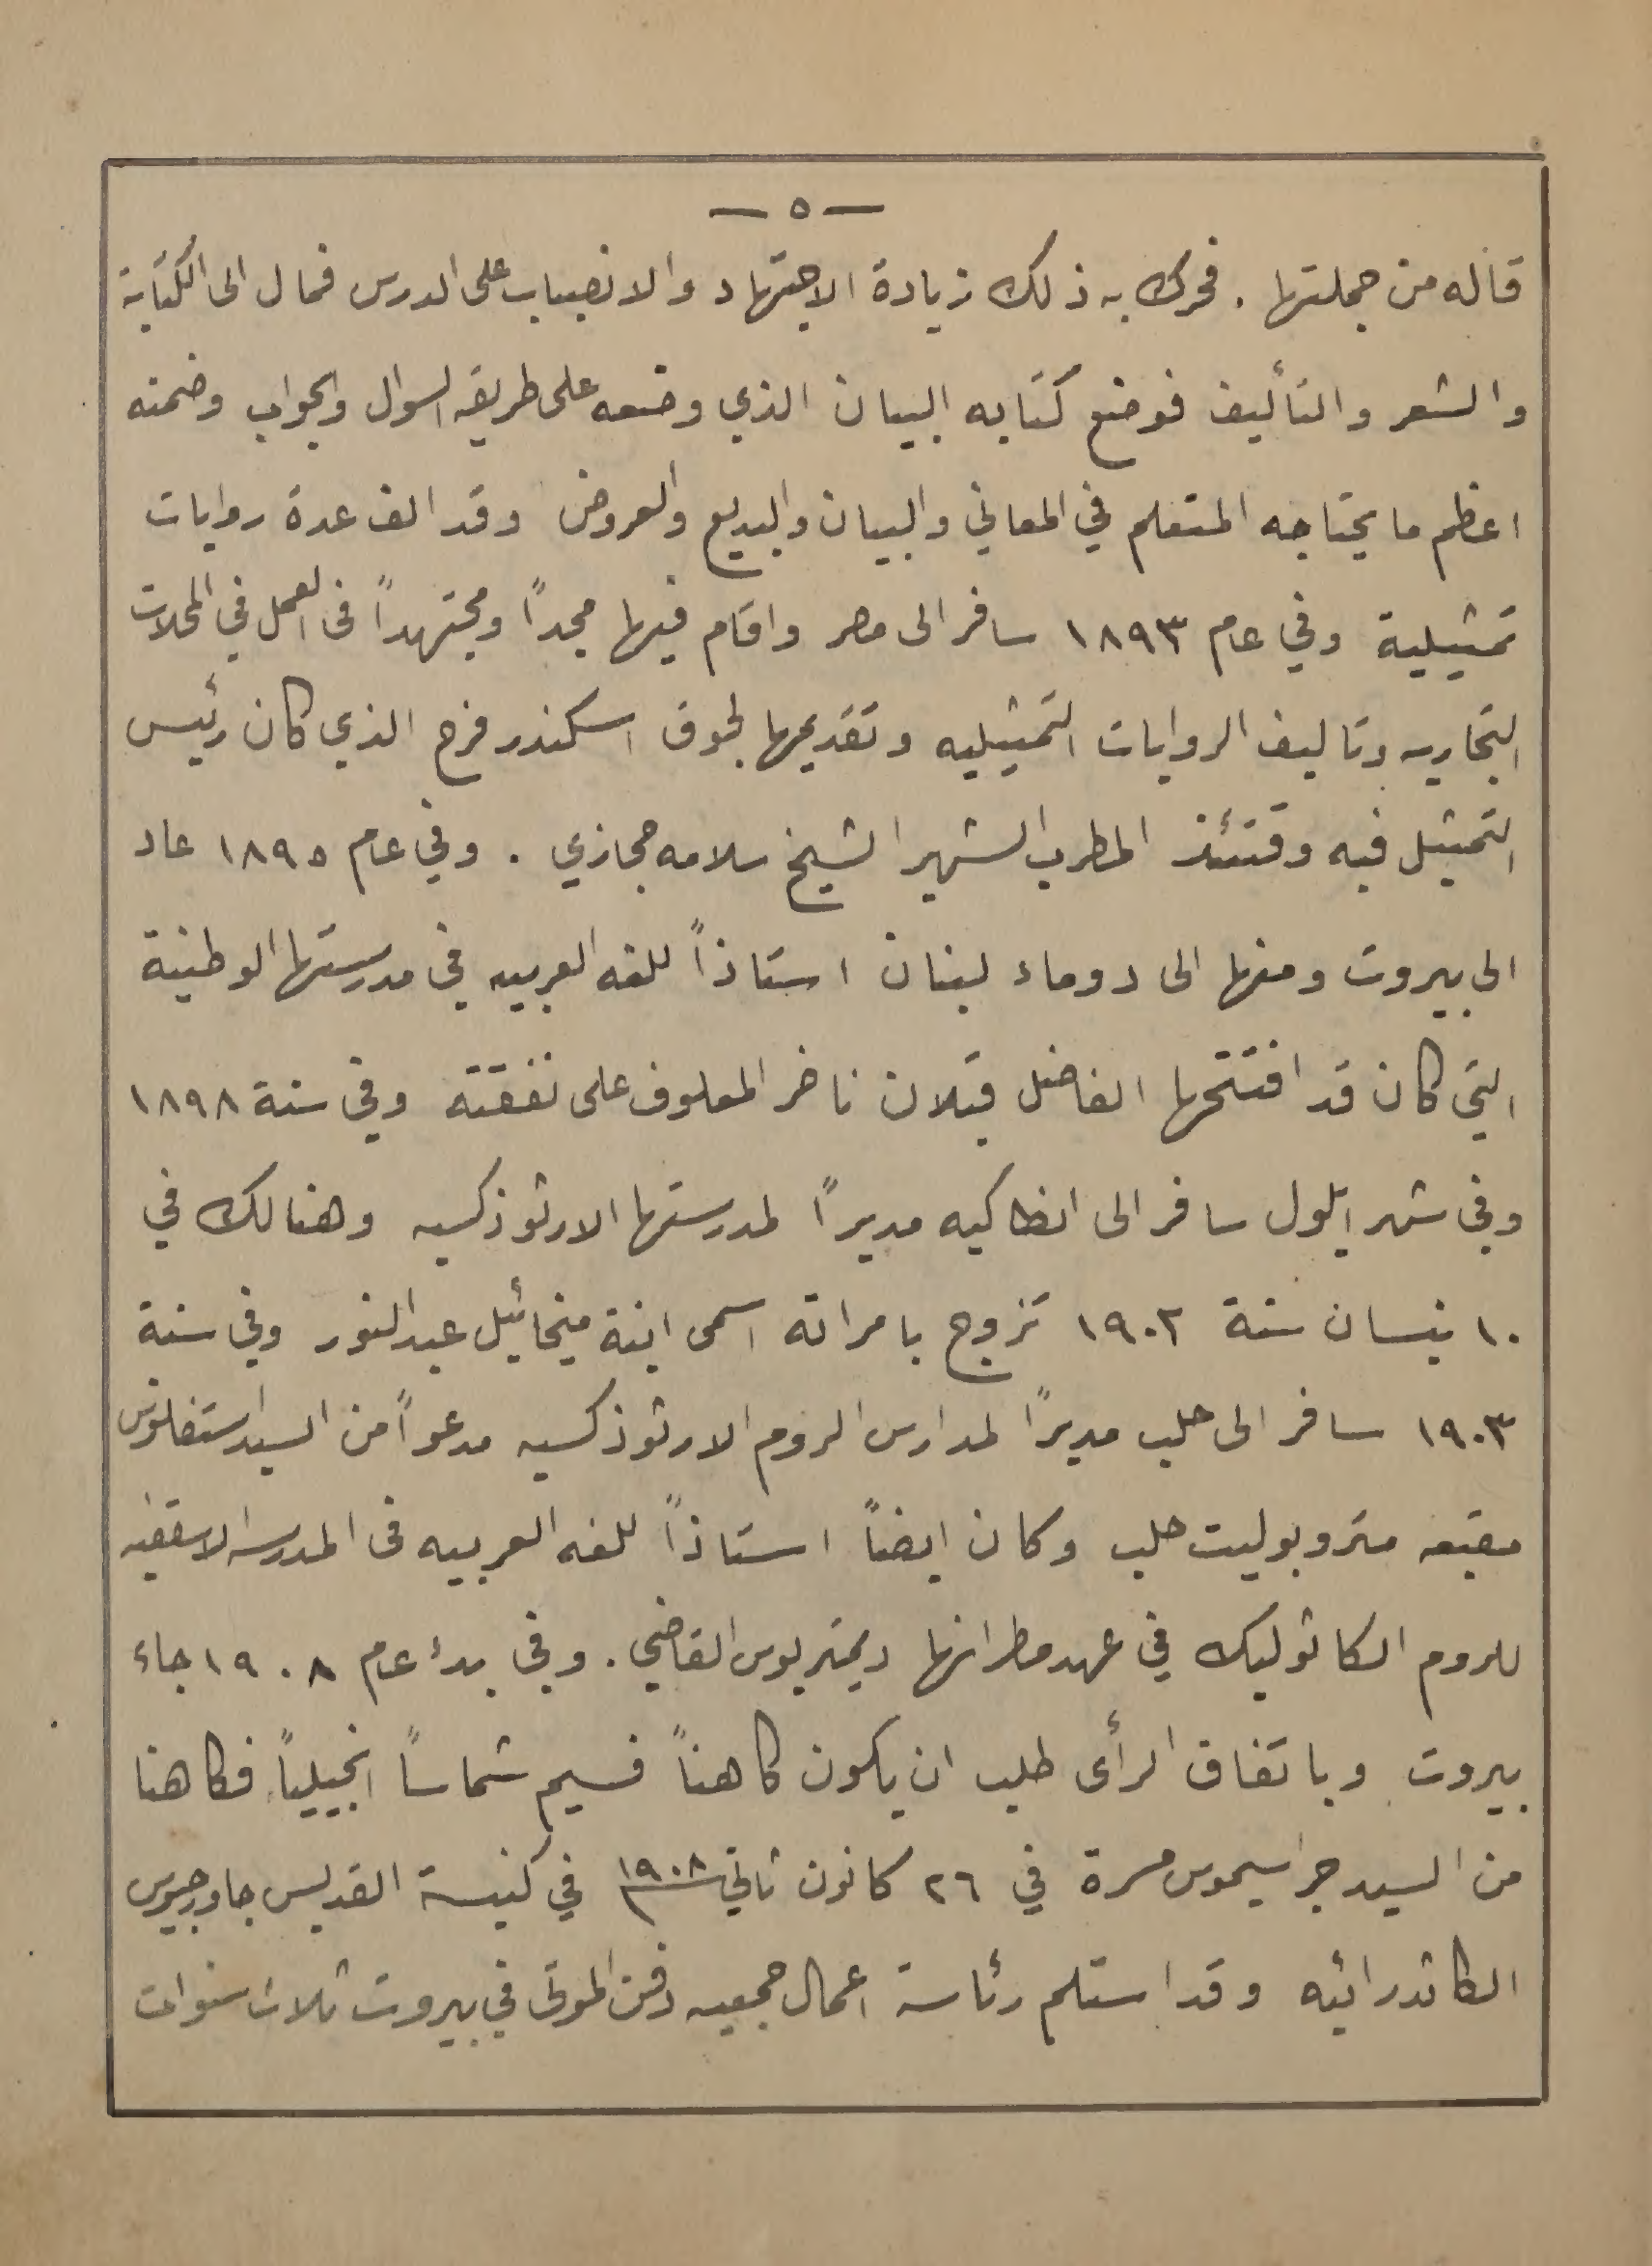 — ٥ —
قاله من جملتها . فحرك به ذلك زيادة الاجتهاد والانصباب على الدرس فمال الى الكتابة
والشعر والتأليف فوضع كتابه البيان الذي وضعه على طريقه السوال والجواب وضمنه
اعظم ما يحتاجه المتعلم في المعاني والبيان والبديع والعروض وقد الف عدة روايات
تمثيلية وفي عام ١٨٩٣ سافر الى مصر واقام فيها مجداً ومجتهداً في العمل في المحلات
التجاريه وتاليف الروايات التمثيليه وتقديمها لجوق اسكندر فرح الذي كان رئيس
التمثيل فيه وقتئذ المطرب الشهير الشيخ سلامه حجازي . وفي عام ١٨٩٥ عاد
الى بيروت ومنها الى دوماء لبنان استاذاً للغه العربيه في مدرستها الوطنية
التي كان قد افتتحها الفاضل قبلان ناضر المعلوف على نفقته وفي سنة ١٨٩٨
وفي شهر ايلول سافر الى انطاكيه مديراً لمدرستها الارثوذكسيه وهنالك في
١٠ نيسان سنة ١٩٠٢ تزوج بامراته اسمى ابنة ميخائيل عبد النور وفي سنة
١٩٠٣ سافر الى حلب مديراً لمدارس الروم الارثوذكسيه مدعواً من السيد استفانوس
مقبعه متروبوليت حلب وكان ايضاً استاذاً للغه العربيه فى المدرسه الاسقفيه
للروم الكاثوليك في عهد مطرانها ديمتريوس القاضي . وفي بدء عام ١٩٠٨ جاء
بيروت وباتفاق الرأى طلب ان يكون كاهناً فسيم شماساً انجيلياً فكاهنا
من السيد جراسيموس مسرة في ٢٦ كانون ثاني ١٩٠٨ في كنيسة القديس جاورجيوس
الكاتدرائيه وقد استلم رئاسة اعمال جمعيه دفن الموتى في بيروت ثلاث سنوات